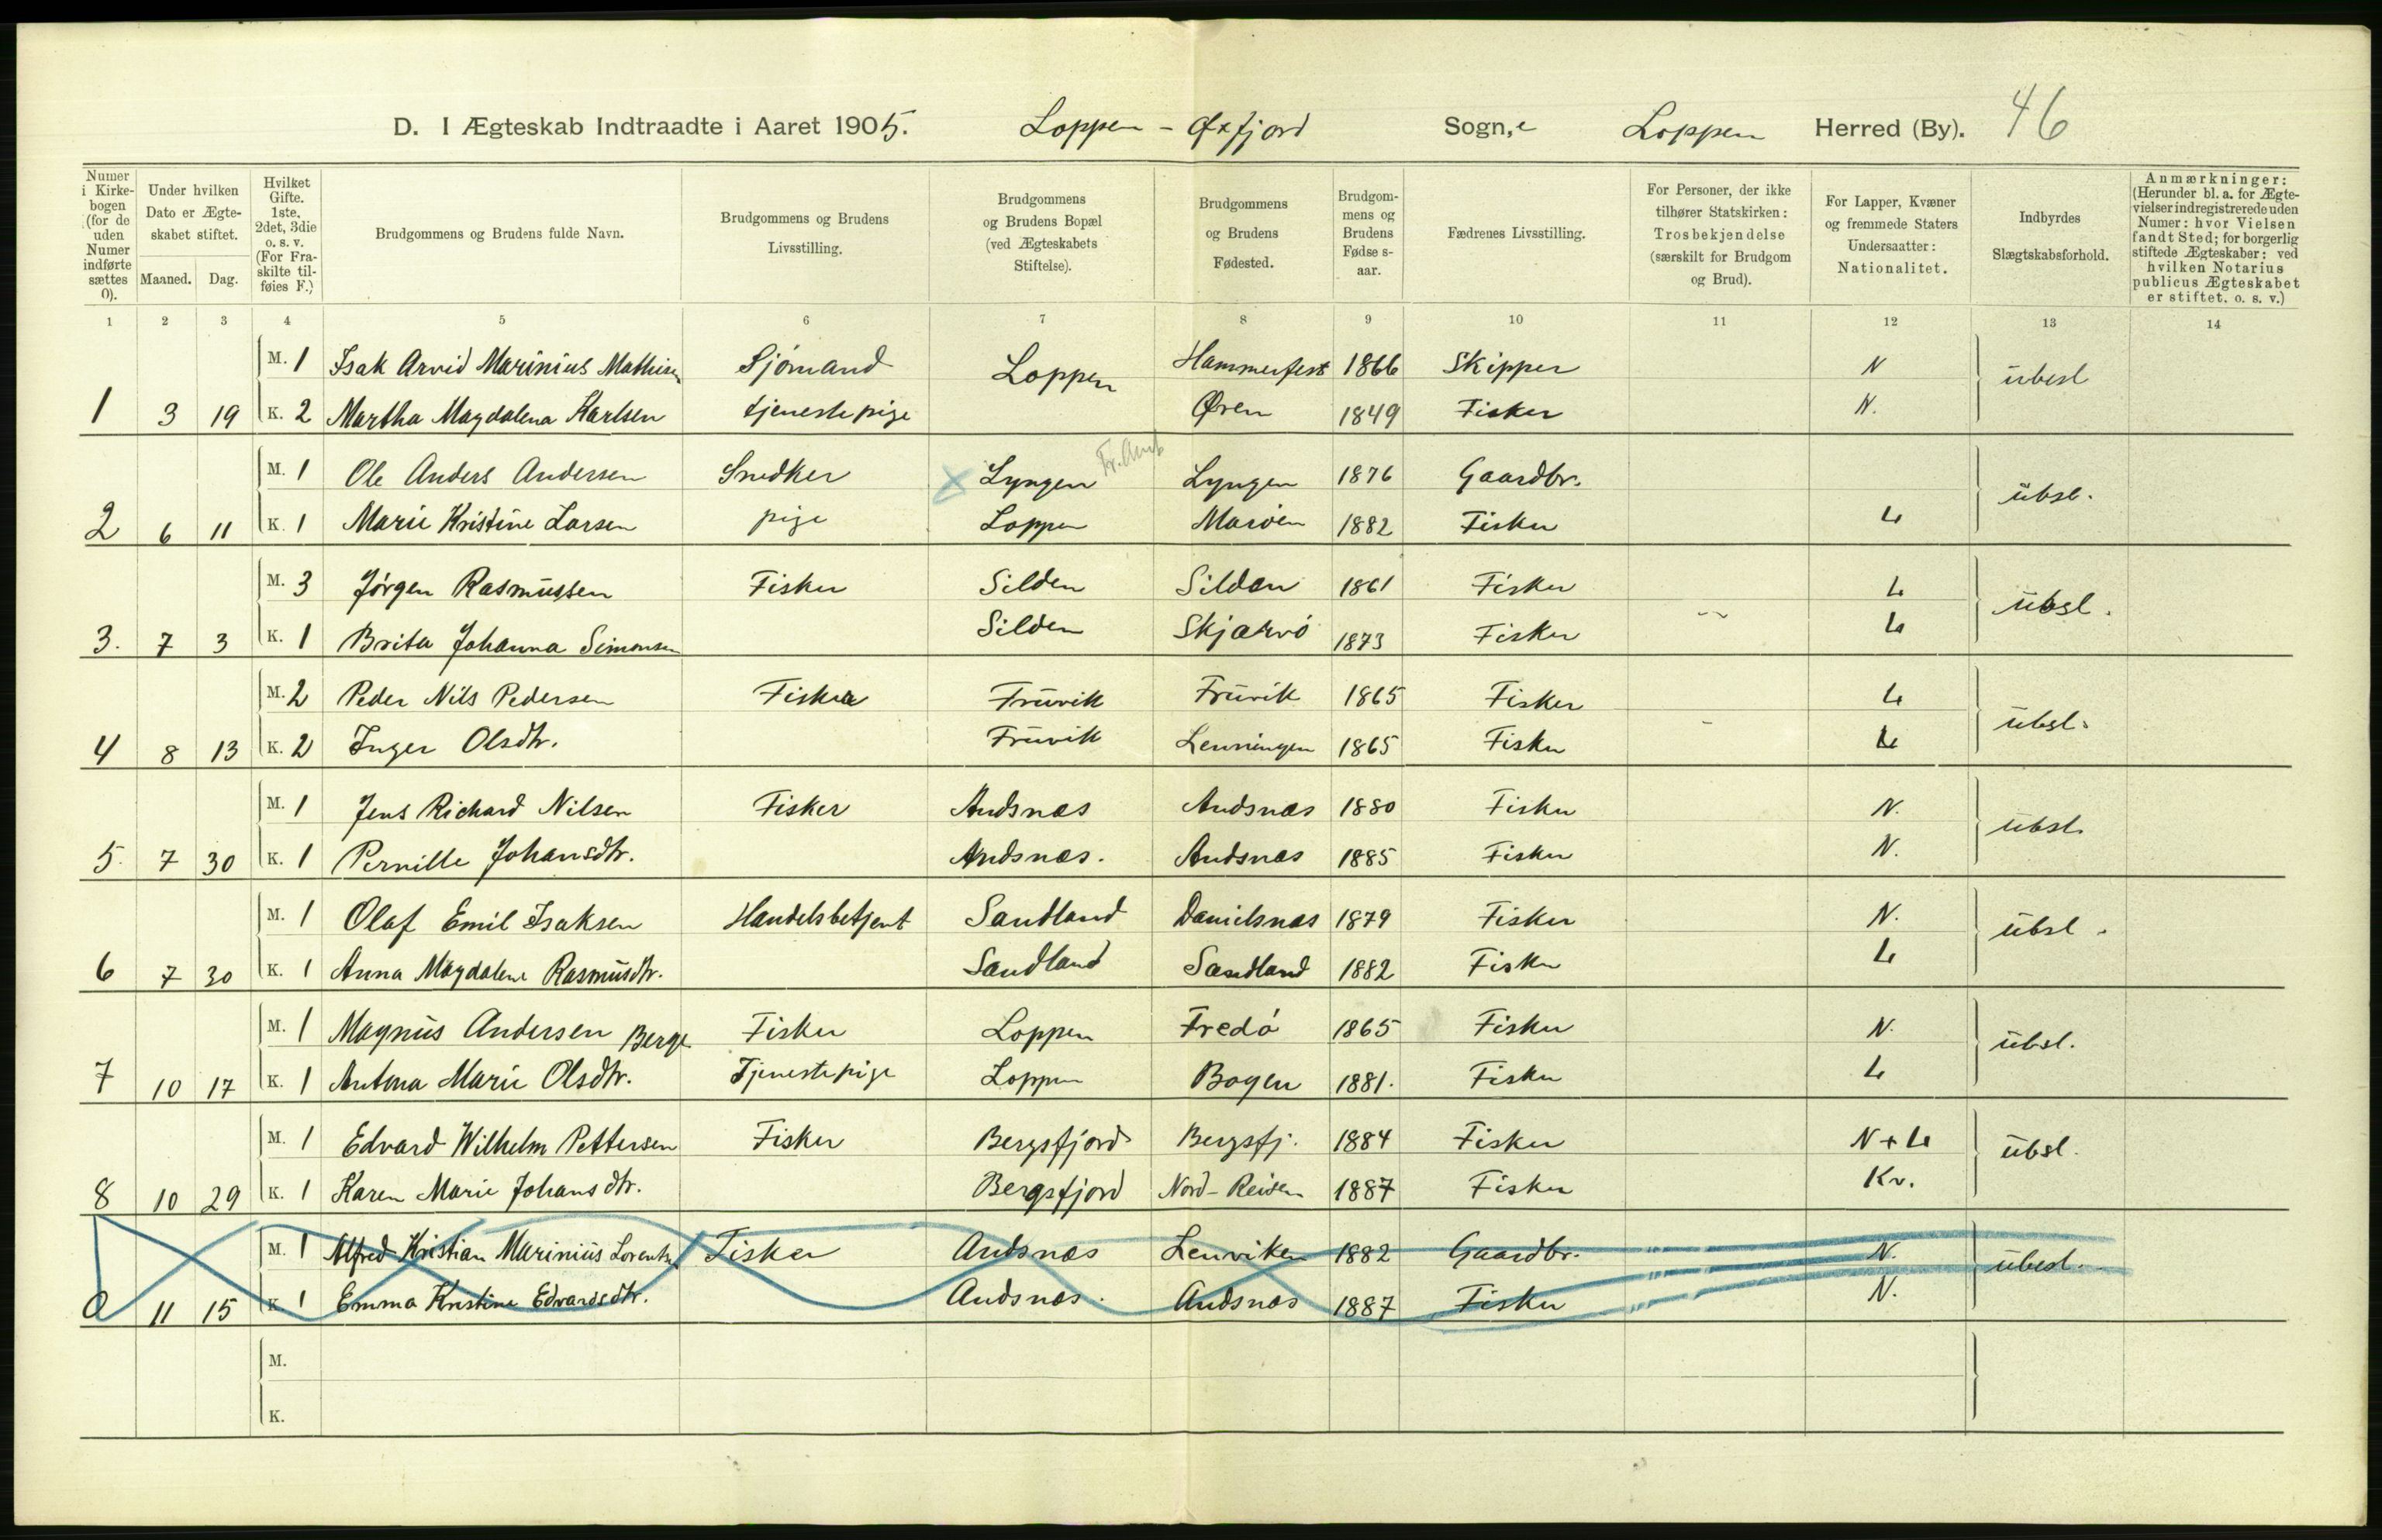 D. I Ægteskab Indtraadte i Aaret 1905. Loppen - Øxfjord Sogn,e Loppen Herred (By). 46
Numer i Kirke-bogen (for de uden Numer indførte sættes 0).
Under hvilken Dato er Ægte-skabet stiftet.
Maaned. Dag.
Hvilket Gifte. 1ste, 2det, 3die o. s. v. (For Fra-skilte til-føies F.)
Brudgommens og Brudens fulde Navn.
Brudgommens og Brudens Livsstilling.
Brudgommens og Brudens Bopæl (ved Ægteskabets Stiftelse).
Brudgommens og Brudens Fødested.
Brudgom-mens og Brudens Fødse s-aar.
Fædrenes Livsstilling.
For Personer, der ikke tilhører Statskirken: Trosbekjendelse (særskilt for Brudgom og Brud).
For Lapper, Kvæner og fremmede Staters Undersaatter: Nationalitet.
Indbyrdes Slægtskabsforhold.
Anmærkninger: (Herunder bl. a. for Ægte-vielser indregistrerede uden Numer: hvor Vielsen fandt Sted; for borgerlig stiftede Ægteskaber: ved hvilken Notarius publicus Ægteskabet er stiftet, o. s. v.)
1 2 3 4 5 6 7 8 9 10 11 12 13 14
M. 1 Isak Arvid Marinius Mathisen Sjømand Loppen Hammerfest 1866 Skipper N ubesl
1 3 19 K. 2 Martha Magdalena Karlsen tjenestepige Øren 1849 Fisker N.
Fr. Amt
M. 1 Ole Anders Andersen Snedker x Lyngen Lyngen 1876 Gaardbr. ubsl.
2 6 11 K. 1 Marie Kristine Larsen pige Loppen Marøen 1882 Fisker L
M. 3 Jørgen Rasmussen Fisker Silden Silden 1861 Fisker L ubsl.
3. 7 3 K. 1 Brita Johanna Simonsen Silden Skjærvö 1873 Fisker L
M. 2 Peder Nils Pedersen Fisker Fruvik Fruvik 1865 Fisker L ubsl.
4 8 13 K. 2 Inger Olsdtr. Fruvik 1865 Fisker L
M. 1 Jens Richard Nilsen Fisker Andsnæs Andsnæs 1880 Fisker N. ubsl.
5. 7 30 K. 1 Pernille Johansdtr. Andsnæs. Andsnæs 1885 Fisker N.
M. 1 Olaf Emil Isaksen Handelsbetjent Sandland Danielsnæs 1879 Fisker N. ubsl.
6 7 30 K. 1 Anna Magdalene Rasmusdtr. Sandland Sandland 1882 Fisker L
M. 1 Magnus Andersen Berge Fisker Loppen Fredö 1865 Fisker N. ubsl.
7 10 17 K. 1 Antona Marie Olsdtr. Tjenestepige Loppen Bogen 1881. Fisker L
M. 1 Edvard Wilhelm Pettersen Fisker Bergsfjord Bergsfj. 1884 Fisker N + L ubsl.
8 10 29 K. 1 Karen Marie Johansdtr. Bergsfjord Nord-Reisen 1887 Fisker Kv.
M. 1 Alfred Kristian Marinius Lorentz. Fisker Andsnæs Lenviken 1882 Gaardbr. N. ubesl.
0 11 15 K. 1 Emma Kristine Edvardsdtr. Andsnæs. Andsnæs 1887 Fisker N.
M.
K.